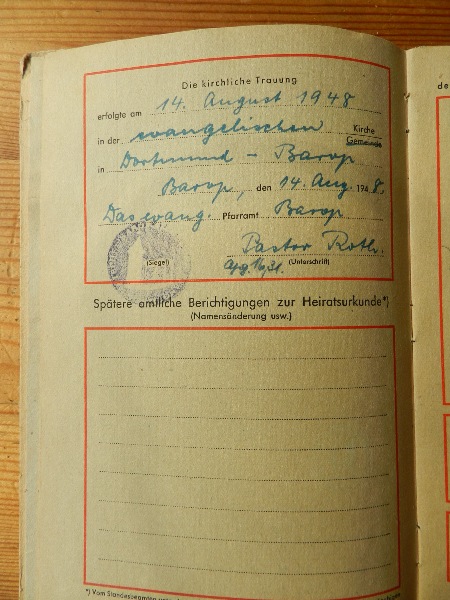 Die kirchliche Trauung
erfolgte am 14. August 1948
in der evangelischen Kirche
Gemeinde
in Dortmund - Barop
Barop, den 14. Aug. 1948.
Das evang. Pfarramt Barop
Pastor Roth.
(Siegel) (Unterschrift)
Spätere amtliche Berichtigungen zur Heiratsurkunde*)
(Namensänderung usw.)
*) Vom Standesbeamten
de